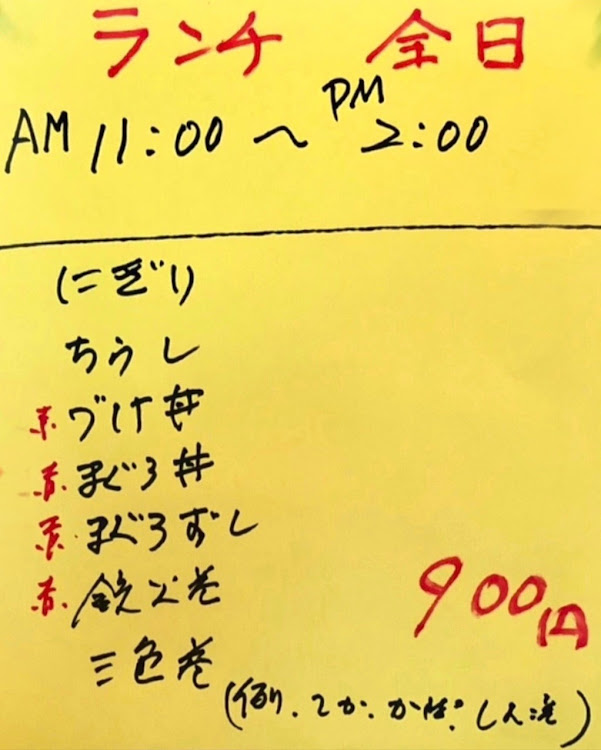 ランチ 全日
AM 11:00 〜 PM 2:00
にぎり
ちらし
赤.づけ丼
赤.まぐろ丼
赤.まぐろずし
赤.鉄火巻
三色巻
900円
(例.てか.かっぱ.しん巻)